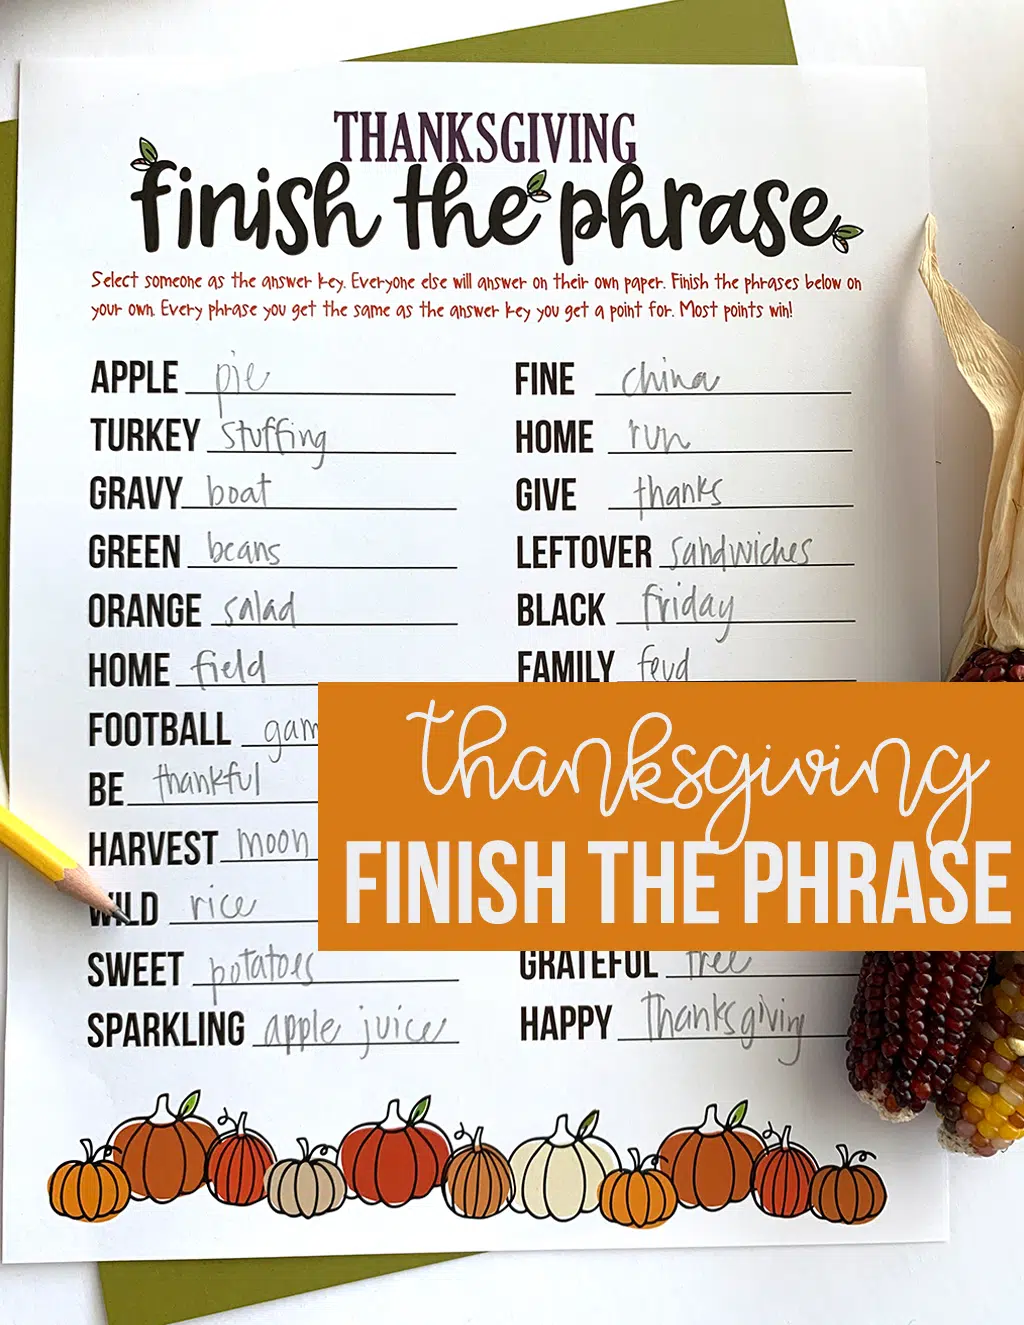 THANKSGIVING
finish the phrase
Select someone as the answer key. Everyone else will answer on their own paper. Finish the phrases below on
your own. Every phrase you get the same as the answer key you get a point for. Most points win!
APPLE pie
TURKEY stuffing
GRAVY boat
GREEN beans
ORANGE salad
HOME field
FOOTBALL gam
BE thankful
HARVEST moon
WILD rice
SWEET potatoes
SPARKLING apple juice
FINE china
HOME run
GIVE thanks
LEFTOVER sandwiches
BLACK friday
FAMILY feud
GRATEFUL tree
HAPPY Thanksgiving
thanksgiving
FINISH THE PHRASE